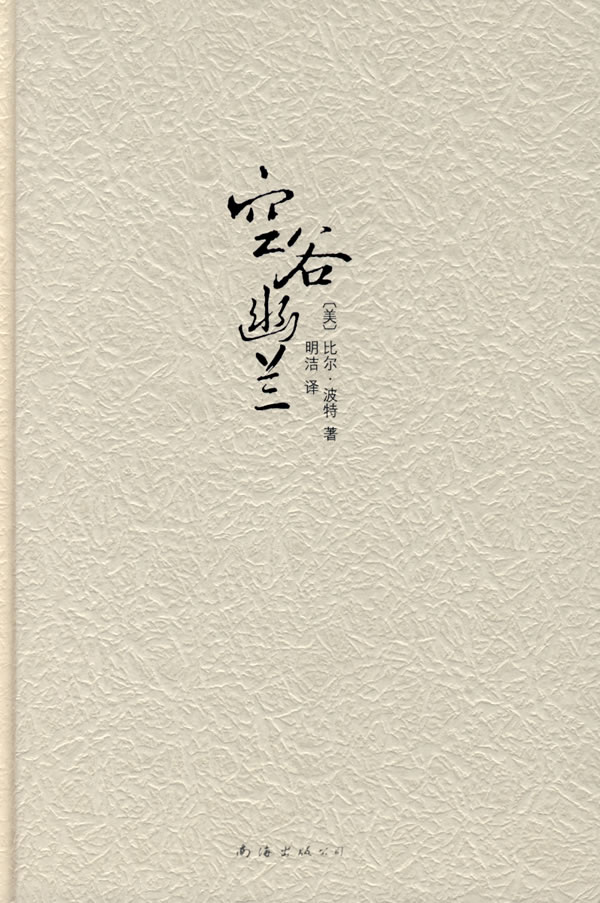 空谷幽兰
〔美〕比尔·波特 著
明洁 译
南海出版公司